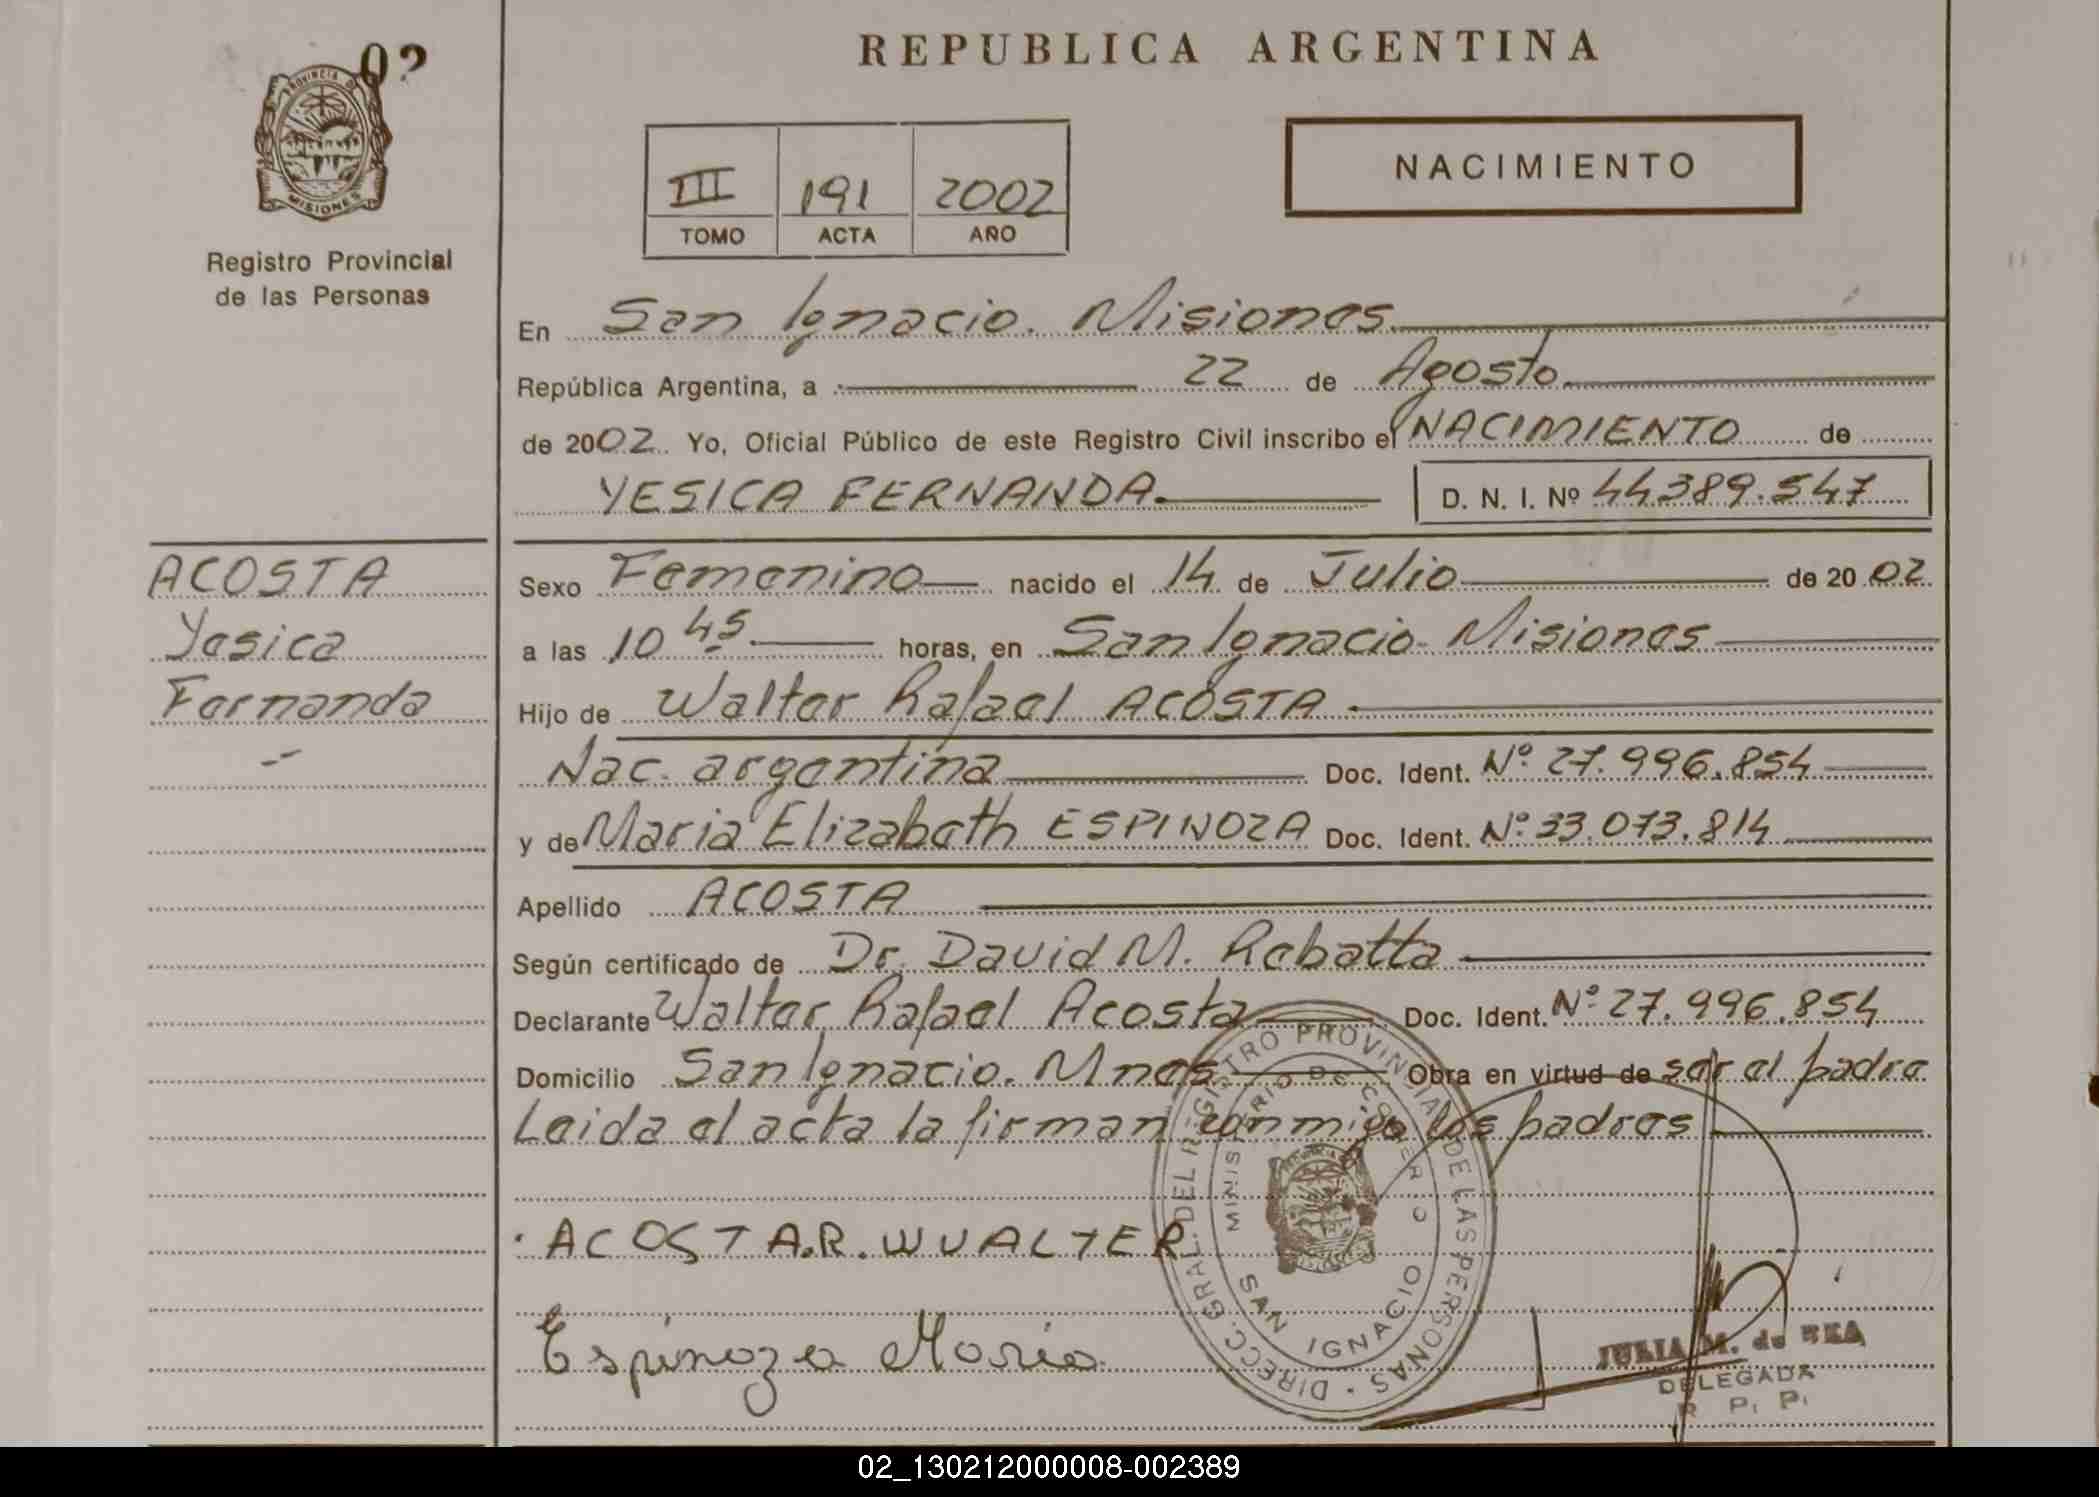 02
PROVINCIA DE
MISIONES
Registro Provincial
de las Personas
REPUBLICA ARGENTINA
III 191 2002
TOMO ACTA AÑO
NACIMIENTO
En San Ignacio. Misiones
República Argentina, a 22 de Agosto
de 2002 Yo, Oficial Público de este Registro Civil inscribo el NACIMIENTO de
YESICA FERNANDA D. N. I. Nº 44.389.547
ACOSTA
Yesica
Fernanda
Sexo Femenino nacido el 14 de Julio de 20 02
a las 10 45 horas, en San Ignacio - Misiones
Hijo de Walter Rafael ACOSTA
Nac. argentina Doc. Ident. Nº 27.996.854
y de Maria Elizabeth ESPINOZA Doc. Ident. Nº 33.073.814
Apellido ACOSTA
Según certificado de Dr. David M. Rebatta
Declarante Walter Rafael Acosta Doc. Ident. Nº 27.996.854
Domicilio San Ignacio. Mnes Obra en virtud de ser el padre
Leida el acta la firman conmigo los padres
ACOSTA.R.WUALTER
Espinoza Maria
DIRECC. GRAL. DEL REGISTRO PROVINCIAL DE LAS PERSONAS
MINISTERIO DE GOBIERNO
SAN IGNACIO
JULIA M. de
DELEGADA
R. P. P.
02_130212000008-002389